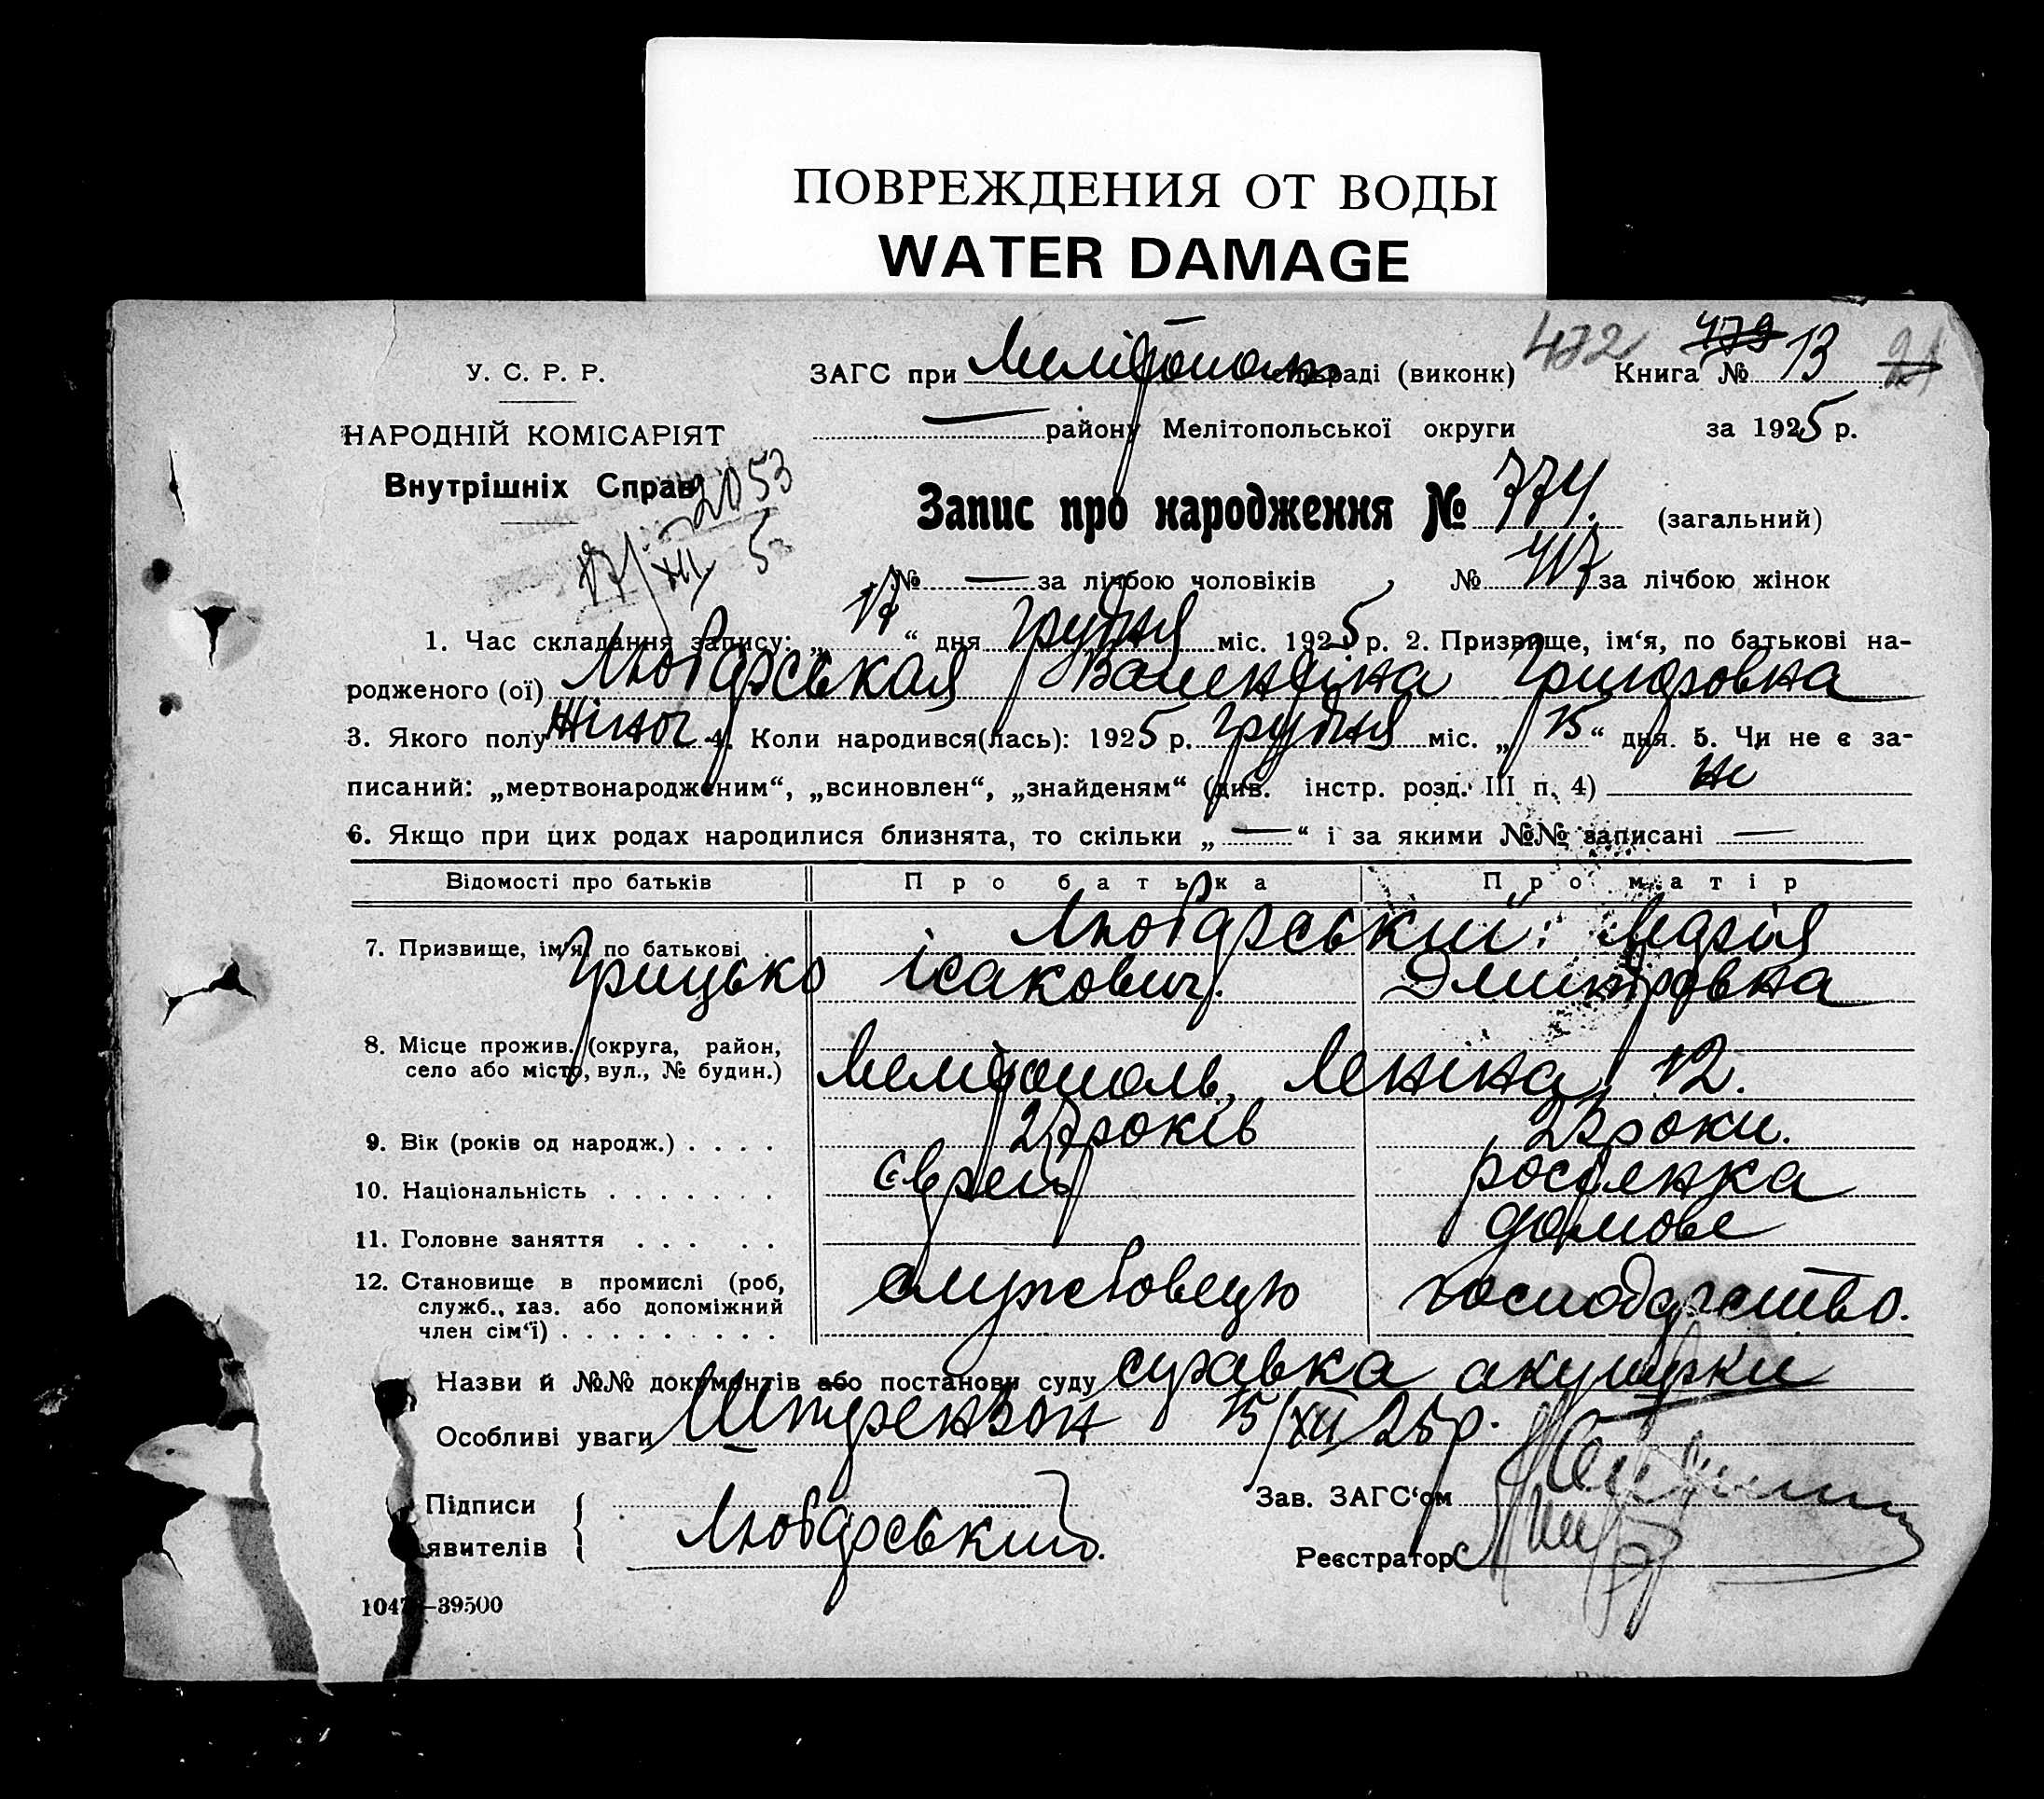 ПОВРЕЖДЕНИЯ ОТ ВОДЫ
WATER DAMAGE
У. С. Р. Р.
НАРОДНІЙ КОМІСАРІЯТ
Внутрішніх Справ
2053
17/XII 5
ЗАГС при Мелітополь раді (виконк)
472
479 13 Книга №
— району Мелітопольської округи за 1925 р.
Запис про народження № 774. (загальний)
№ — за лічбою чоловіків , № 417 за лічбою жінок
1. Час складання запису: „17“ дня грудня міс. 1925 р. 2. Призвище, ім‘я, по батькові на-
родженого (ої) Любарськая Валентіна Григоровна
3. Якого полу жіноч 4. Коли народився(лась): 1925 р. грудня міс. „15“ дня. 5. Чи не є за-
писаний: „мертвонародженим“, „всиновлен“, „знайденям“ (див. інстр. розд. III п. 4) не
6. Якщо при цих родах народилися близнята, то скільки „—“ і за якими №№ записані —
Відомості про батьків Про батька Про матір
7. Призвище, ім‘я, по батькові . Любарський: Марія
Грицько Ісакович. Дмитровна
8. Місце прожив. (округа, район,
село або місто, вул., № будин.) Мелітополь, Леніна, 12.
9. Вік (років од народж.) . . . . 27 років 23 роки.
10. Національність . . . . . . . Єврей росіянка
11. Головне заняття . . . . . домове
12. Становище в промислі (роб,
служб., хаз. або допоміжний
член сім‘ї) . . . . . . . . . службовець господарство.
Назви й №№ документів або постанови суду справка акушерки
Особливі уваги Штрензон 15/XII 25 р.
Підписи
явителів Любарський.
Зав. ЗАГС‘ом
Реєстратор
1047 –39500